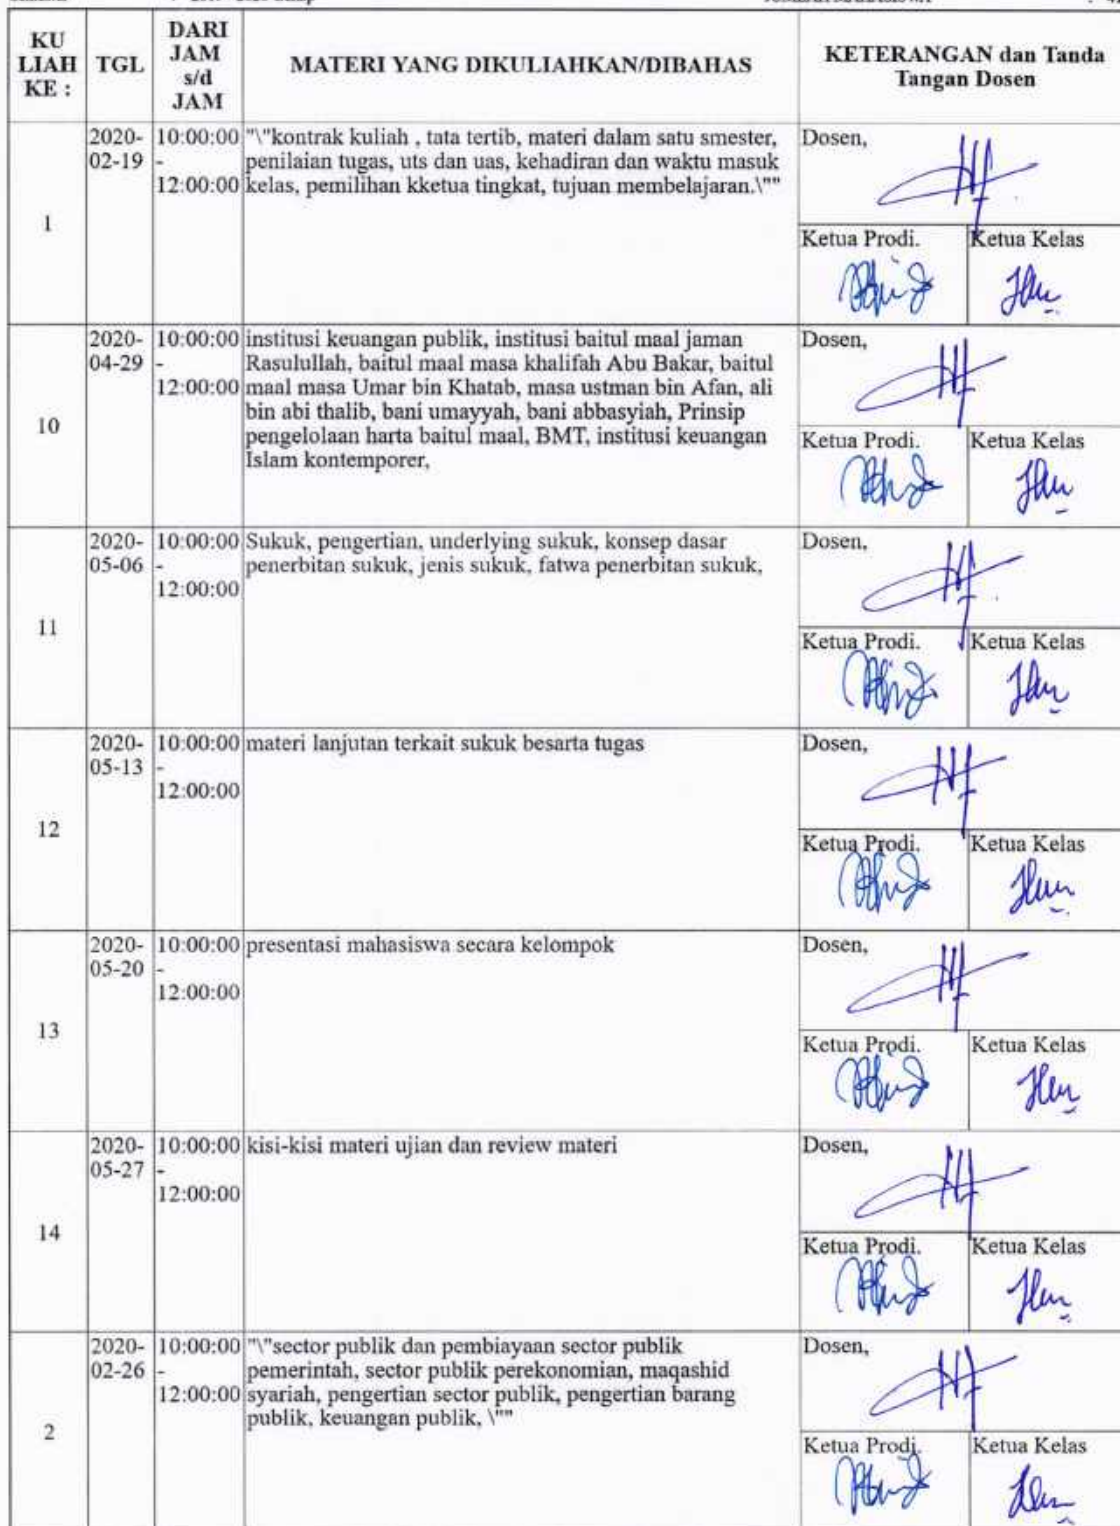 KU
LIAH
KE :
TGL
DARI
JAM
s/d
JAM
MATERI YANG DIKULIAHKAN/DIBAHAS
KETERANGAN dan Tanda
Tangan Dosen
1
2020-
02-19
10:00:00
-
12:00:00
"\"kontrak kuliah , tata tertib, materi dalam satu smester,
penilaian tugas, uts dan uas, kehadiran dan waktu masuk
kelas, pemilihan kketua tingkat, tujuan membelajaran.\""
Dosen,
Ketua Prodi.
Ketua Kelas
10
2020-
04-29
10:00:00
-
12:00:00
institusi keuangan publik, institusi baitul maal jaman
Rasulullah, baitul maal masa khalifah Abu Bakar, baitul
maal masa Umar bin Khatab, masa ustman bin Afan, ali
bin abi thalib, bani umayyah, bani abbasyiah, Prinsip
pengelolaan harta baitul maal, BMT, institusi keuangan
Islam kontemporer,
Dosen,
Ketua Prodi.
Ketua Kelas
11
2020-
05-06
10:00:00
-
12:00:00
Sukuk, pengertian, underlying sukuk, konsep dasar
penerbitan sukuk, jenis sukuk, fatwa penerbitan sukuk,
Dosen,
Ketua Prodi.
Ketua Kelas
12
2020-
05-13
10:00:00
-
12:00:00
materi lanjutan terkait sukuk besarta tugas
Dosen,
Ketua Prodi.
Ketua Kelas
13
2020-
05-20
10:00:00
-
12:00:00
presentasi mahasiswa secara kelompok
Dosen,
Ketua Prodi.
Ketua Kelas
14
2020-
05-27
10:00:00
-
12:00:00
kisi-kisi materi ujian dan review materi
Dosen,
Ketua Prodi.
Ketua Kelas
2
2020-
02-26
10:00:00
-
12:00:00
"\"sector publik dan pembiayaan sector publik
pemerintah, sector publik perekonomian, maqashid
syariah, pengertian sector publik, pengertian barang
publik, keuangan publik, \""
Dosen,
Ketua Prodi.
Ketua Kelas